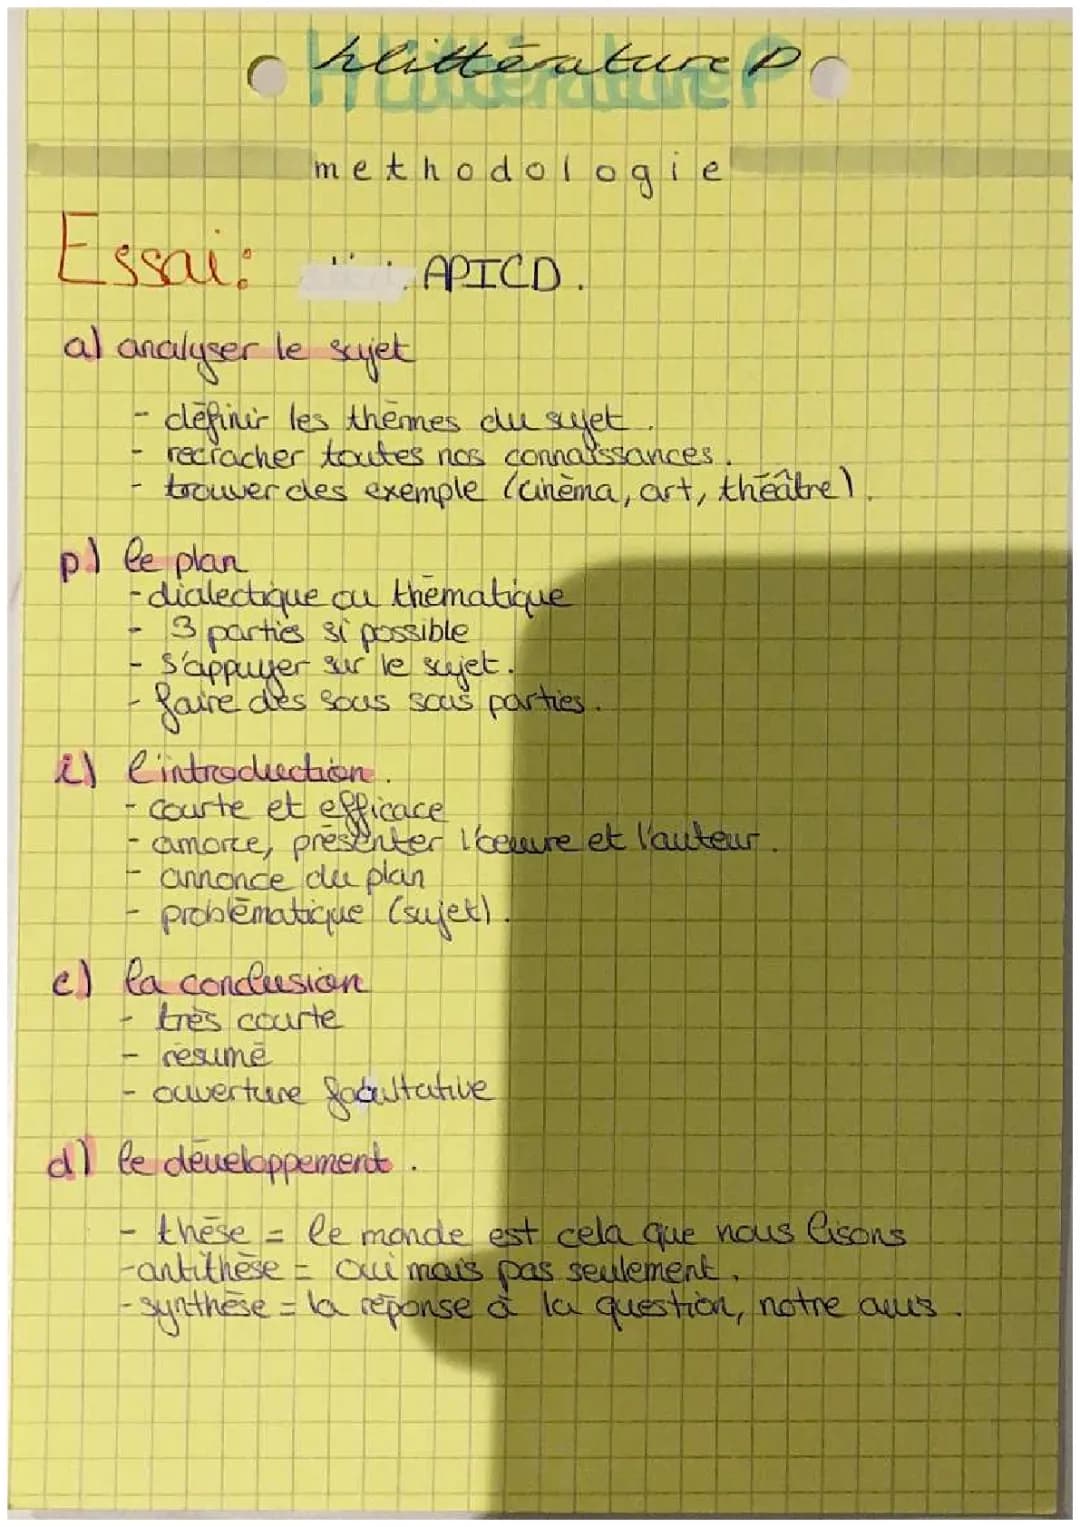 hlittérature P
methodologie
Essai: APICD.
a) analyser le sujet
- définir les thèmes du sujet.
- recracher toutes nos connaissances.
- trouver des exemple (cinéma, art, théâtre).
p) le plan
- dialectique ou thématique
- 3 parties si possible
- s'appuyer sur le sujet.
- faire des sous sous parties.
i) l'introduction.
- courte et efficace
- amorce, présenter l'oeuvre et l'auteur.
- annonce du plan
- problématique (sujet).
c) la conclusion
- très courte
- résumé
- ouverture facultative
d) le développement.
- thèse = le monde est cela que nous lisons
- antithèse = oui mais pas seulement.
- synthèse = la réponse à la question, notre avis.